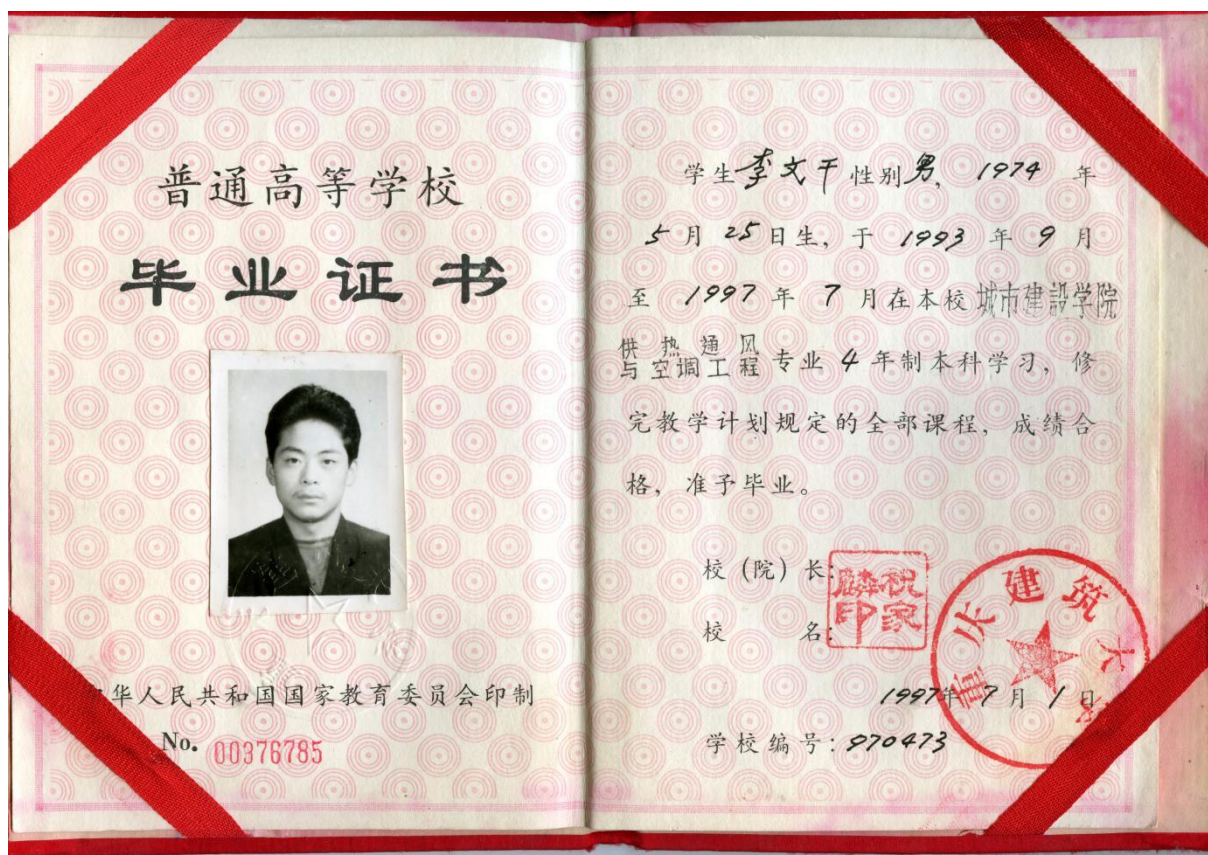 普通高等学校
毕业证书
中华人民共和国国家教育委员会印制
No. 00376785
学生李文千性别男，1974年
5月25日生，于1993年9月
至1997年7月在本校城市建設学院
供热通风
与空调工程专业4年制本科学习，修
完教学计划规定的全部课程，成绩合
格，准予毕业。
校(院)长:
祝家麟印
校名:
重庆建筑大学
1997年7月1日
学校编号: 970473